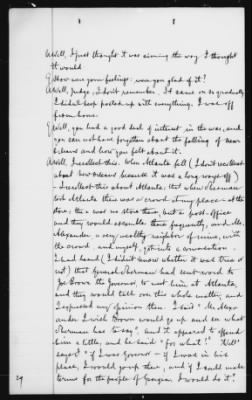 A Well, I just thought it was coming the way I thought
it would.
Q How were your feelings; were you glad of it?
A Well, Judge, I don't remember. It came on so gradually
I didn't keep posted up with everything. I was off
from home.
Q Well, you had a good deal of interest in the war, and
you can not have forgotten about the falling of New
Orleans and how you felt about it.
A Well, I recollect this. When Atlanta fell (I don't recollect
about New Orleans because it was a long ways off)
I recollect this about Atlanta; that when Sherman
took Atlanta there was a crowd at my place at the
store; there was no store there, but a post-office
and they would assemble there frequently, and Mr.
Alexander a very wealthy neighbor of mine, with
the crowd and myself, got into a conversation.
I had heard (I didn't know whether it was true or
not) that General Sherman had sent word to
Joe Brown the Governor, to meet him at Atlanta,
and they would talk over this whole matter, and
I expressed my opinion then. I said "Mr. Alex-
ander I wish Brown would go up and see what
Sherman has to say", and it appeared to offend
him a little, and he said "for what?" "Well"
says I "if I was Governor - if I was in his
place, I would go up there, and if I could make
terms for the people of Georgia, I would do it."